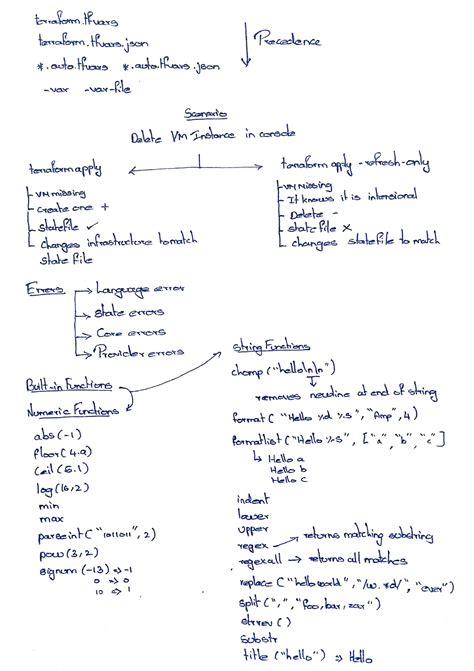 terraform.tfvars
terraform.tfvars.json
*.auto.tfvars *.auto.tfvars.json
-var -var-file
Precedence
Scenario
Delete VM Instance in console
terraform apply
VM missing
Create one +
Statefile ✓
Changes infrastructure to match
State file
terraform apply -refresh-only
VM Missing
It knows it is intensional
Delete -
state file ×
changes statefile to match
Errors
Language error
State errors
Core errors
Provider errors
Built-in Functions
Numeric Functions
abs(-1)
floor(4.9)
Ceil(5.1)
log(16,2)
min
max
parseint("1011011", 2)
pow(3,2)
signum(-13) => -1
0 => 0
10 => 1
String Functions
chomp("hello\n\n")
removes newline at end of string
format("Hello %d %s", "Amp", 4)
formatlist("Hello %s", ["a", "b", "c"]
Hello a
Hello b
Hello c
indent
lower
upper
regex → returns matching substring
regexall → returns all matches
replace("hello world", "/w.*d/", "ever")
split(",", "foo,bar,zar")
strrev()
substr
title("hello") => Hello